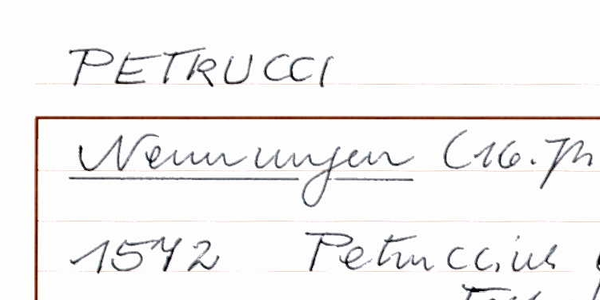 PETRUCCI
Nennungen (16. Jh
1572 Petruccius